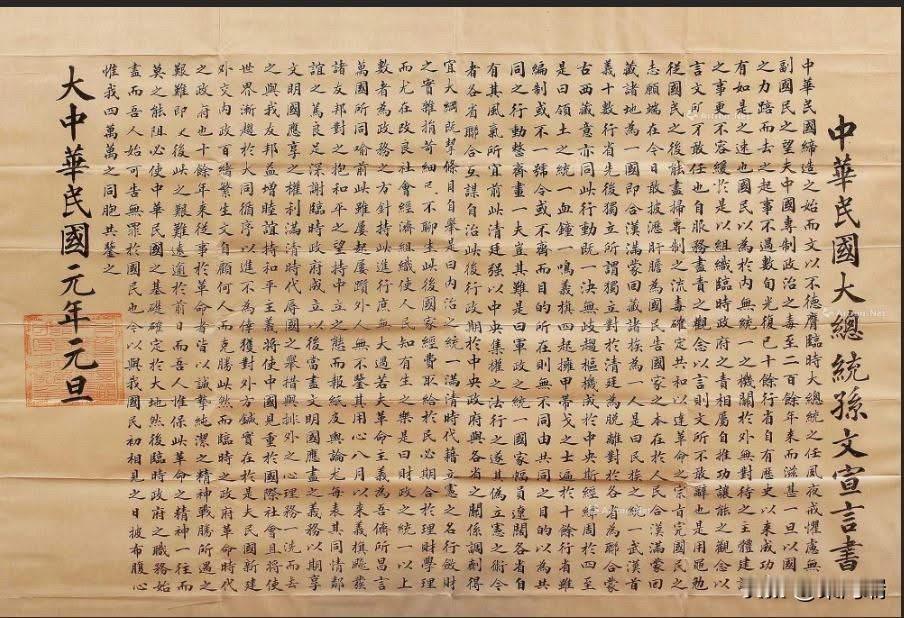 中華民國大總統孫文宣言書
中華民國締造之始而文以不德膺臨時大總統之任夙夜戒懼慮無
副國民之望夫中國專制政治之毒至二百餘年來而滋甚一旦以國民
之力踣而去之起事不過數旬光復已十餘行省自有歷史以來成功未
有如是之速也國民以為於內無統一之機關於外無對待之主體建設
之事更不容緩於是以組織臨時政府之責相屬自推功讓能之觀念以
言文所不敢任也自服務盡責之觀念以言則文所不敢辭也是用黽勉
從國民之後能盡掃專制之流毒確定共和以達革命之宗旨完國民之
志願端在今日敢披瀝肝膽為國民告國家之本在於人民合漢滿蒙回
藏諸地為一國即合漢滿蒙回藏諸族為一人是曰民族之統一武漢首
義十數行省先後獨立所謂獨立對於清廷為脫離對於各省為聯合蒙
古西藏意亦同此行動既一決無歧趨樞機成於中央斯經緯周於四至
是曰領土之統一血鐘一鳴義旗四起擁甲帶戈之士遍於十餘行省雖
編制或不一號令或不齊而目的所在則無不同由共同之目的以為共
同之行動整齊畫一夫豈其難是曰軍政之統一國家幅員遼闊各省自
有其風氣所宜前此清廷強以中央集權之法行之遂其偽立憲之術今
者各省聯合互謀自治此後行政期於中央政府與各省之關係調劑得
宜大綱既挈條目自舉是曰內治之統一滿清時代藉立憲之名行斂財
之實雜捐苛細民不聊生此後國家經費取給於民必期合於理財學理
而尤在改良社會經濟組織使人民知有生之樂是曰財政之統一以上
數者為政務之方針持此進行庶無大過若夫革命主義為吾儕所昌言
萬國所同喻前此雖屢起屢躓外人無不鑒其用心八月以來義旗飈發
諸友邦對之抱和平之望持中立之態而報紙及輿論尤每表其同情鄰
誼之篤良足深謝臨時政府成立以後當盡文明國應盡之義務以期享
文明國應享之權利滿清時代辱國之舉措與排外之心理務一洗而去
之與我友邦益增睦誼持和平主義將使中國見重於國際社會且將使
世界漸趨於大同循序以進不為倖獲對外方鍼實在於是夫民國新建
外交內政百緒繁生文自顧何人而克勝此然而臨時之政府革命時代
之政府也十餘年來從事於革命者皆以誠摯純潔之精神戰勝所遇之
艱難即使後此之艱難遠逾於前日而吾人惟保此革命之精神一往而
莫之能阻必使中華民國之基礎確定於大地然後臨時政府之職務始
盡而吾人始可告無罪於國民也今以與我國民初相見之日披布腹心
惟我四萬萬之同胞共鑒之
大中華民國元年元旦